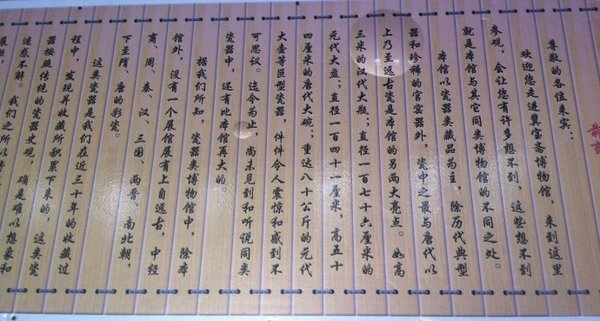 前言
尊敬的各位来宾：
欢迎您走进冀宝斋博物馆，来到这里
参观，会让您有许多想不到，这些想不到
就是本馆与其它同类博物馆的不同之处。
本馆以瓷器类藏品为主，除历代典型
器和珍稀的官窑器外，瓷中之最与唐代以
上乃至远古瓷是本馆的另两大亮点。如高
三米的汉代大瓶；直径一百七十六厘米的
元代大盘；直径一百四十一厘米，高五十
四厘米的唐代大碗；重达八十公斤的元代
大壶等巨型瓷器，件件令人震惊和感到不
可思议。迄今为止，尚未见到和听说同类
瓷器中，还有比本馆再大的。
据我们所知，瓷器类博物馆中，除本
馆外，没有一个展馆展有上自远古，中经
商、周、秦、汉、三国、两晋、南北朝，
下至隋、唐的彩瓷。
这类瓷器是我们在近三十年的收藏过
程中，发现并收藏所积累下来的，这类瓷
器按照传统的瓷器史观，确是难以想象和
迷惑不解。我们之所以